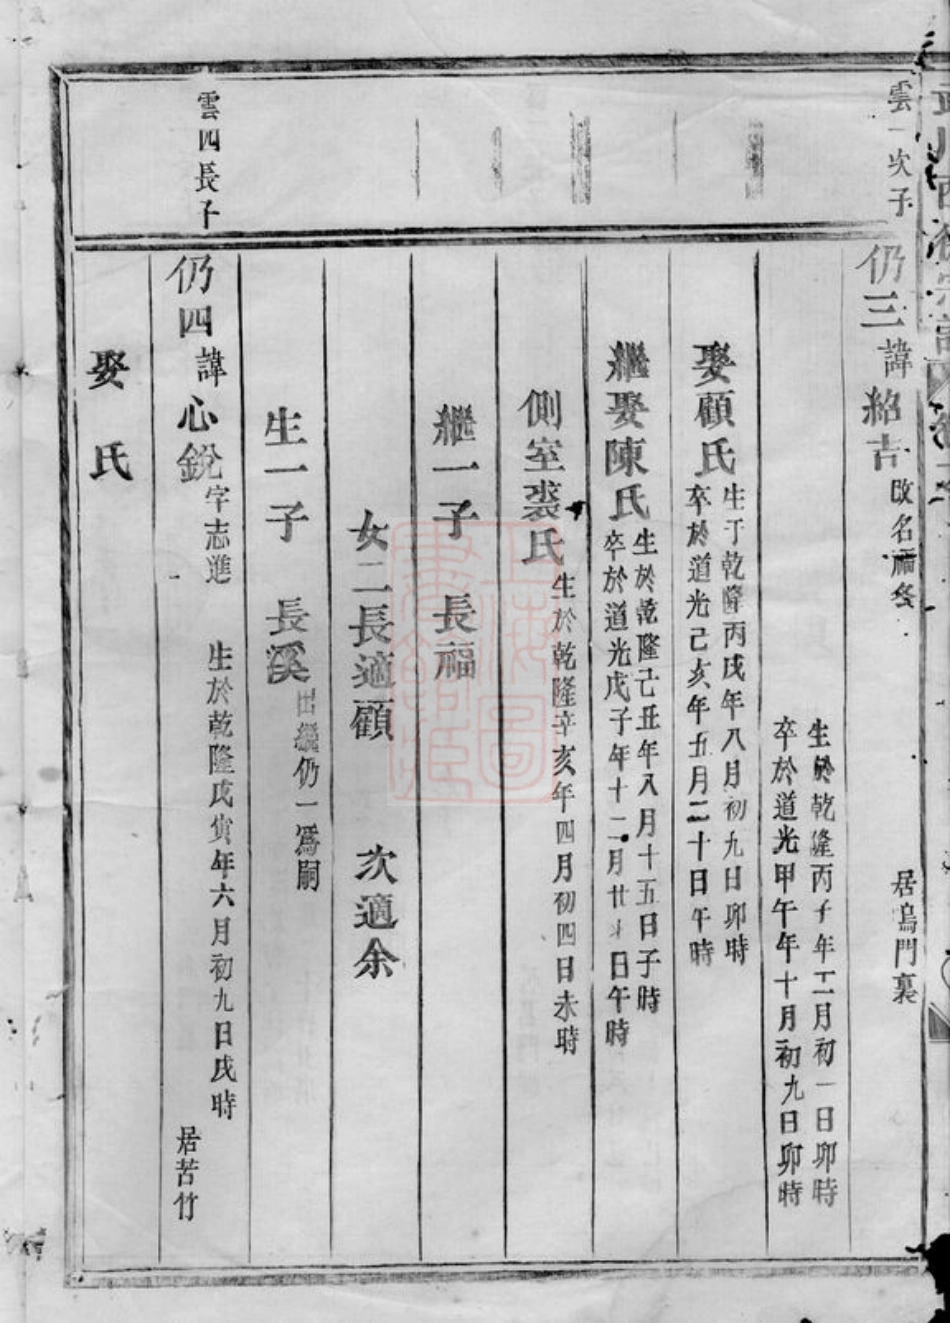 雲一次子
仍三諱紹吉改名福冬 居塢門裏
生於乾隆丙子年二月初一日卯時
卒於道光甲午年十月初九日卯時
娶顧氏
生于乾隆丙戌年八月初九日卯時
卒於道光己亥年五月二十日午時
繼娶陳氏
生於乾隆己丑年八月十五日子時
卒於道光戊子年十二月廿 日午時
側室裘氏生於乾隆辛亥年四月初四日未時
繼一子 長福
女二長適顧 次適余
生一子 長溪出繼仍一爲嗣
雲四長子
仍四諱心銳字志進 生於乾隆戊寅年六月初九日戌時 居苦竹
娶 氏